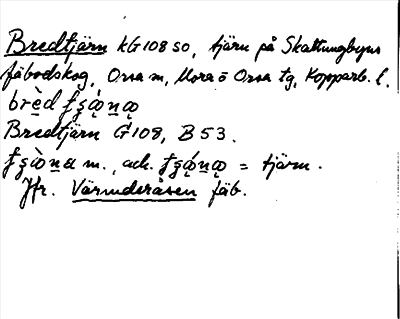 Bredtjärn KG 108 SO, tjärn på Skattungbyns
fäbodskog, Orsa sn, Mora o Orsa tg, Kopparb. l.
brèd
Bredtjärn G 108, B 53.
m., ack. = tjärn.
Jfr. Värmderåsen fäb.